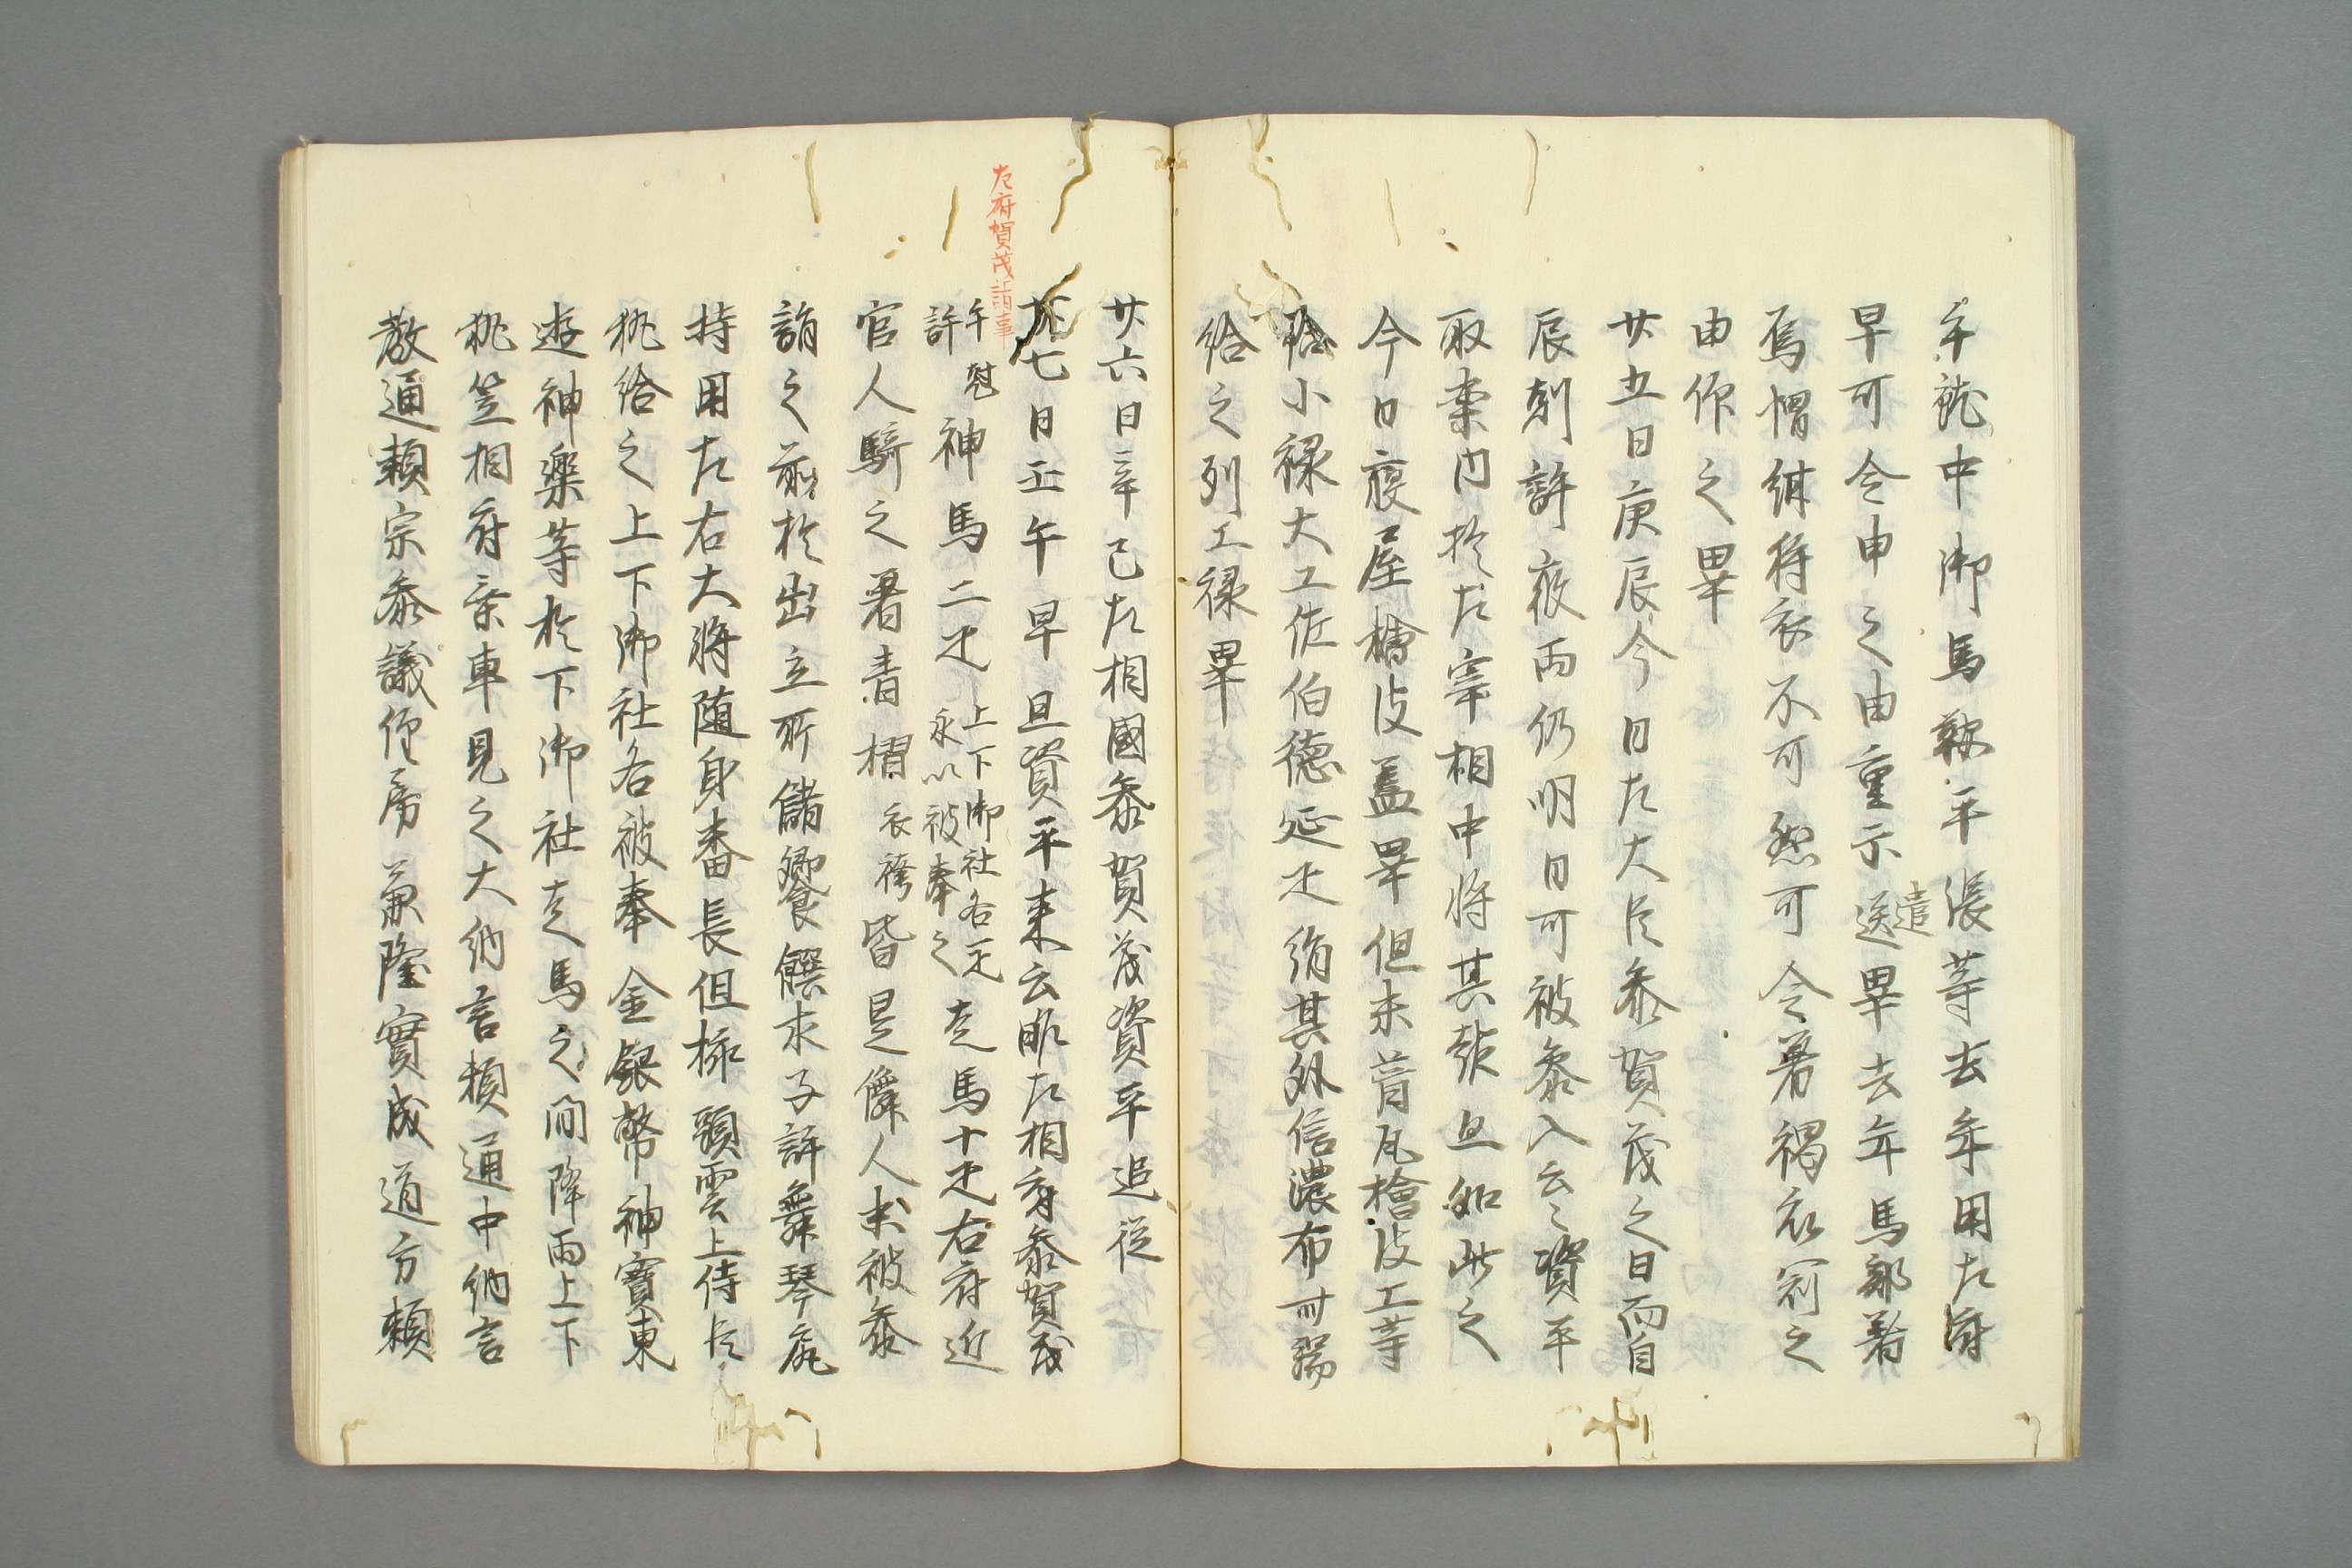 平龍中御馬鞍平張等去年用左府
早可令申之由重示送遣畢去年馬部着
馬帽紺狩衣不可然可令著褐衣冠之
由仰之畢
廿五日庚辰今日左大臣参賀茂之日而自
辰剋許夜雨仍明日可被参入云々資平
取案内於左宰相中将其報且如此之
今日寝屋檜皮葺畢但未葺瓦檜皮工等
給小禄大工佐伯徳延疋絹其外信濃布一端
給之列工禄畢
廿六日辛巳左相国参賀茂資平追従
左府賀茂詣事
廿七日壬午早旦資平来云昨左相府参賀茂
午剋許神馬二疋上下御社各一疋永以被奉之走馬十疋右府近
官人騎之著青摺衣袴皆是儛人未被参
詣之前於出立所儲饗饌求子許舞琴
持用左右大将随身番長但狛頭雲上侍臣
執給之上下御社各被奉金銀幣神寶東
遊神樂等於下御社走馬之間降雨上下
執笠相府乗車見之大納言頼通中納言
教通頼宗参議経房兼隆實成道方頼